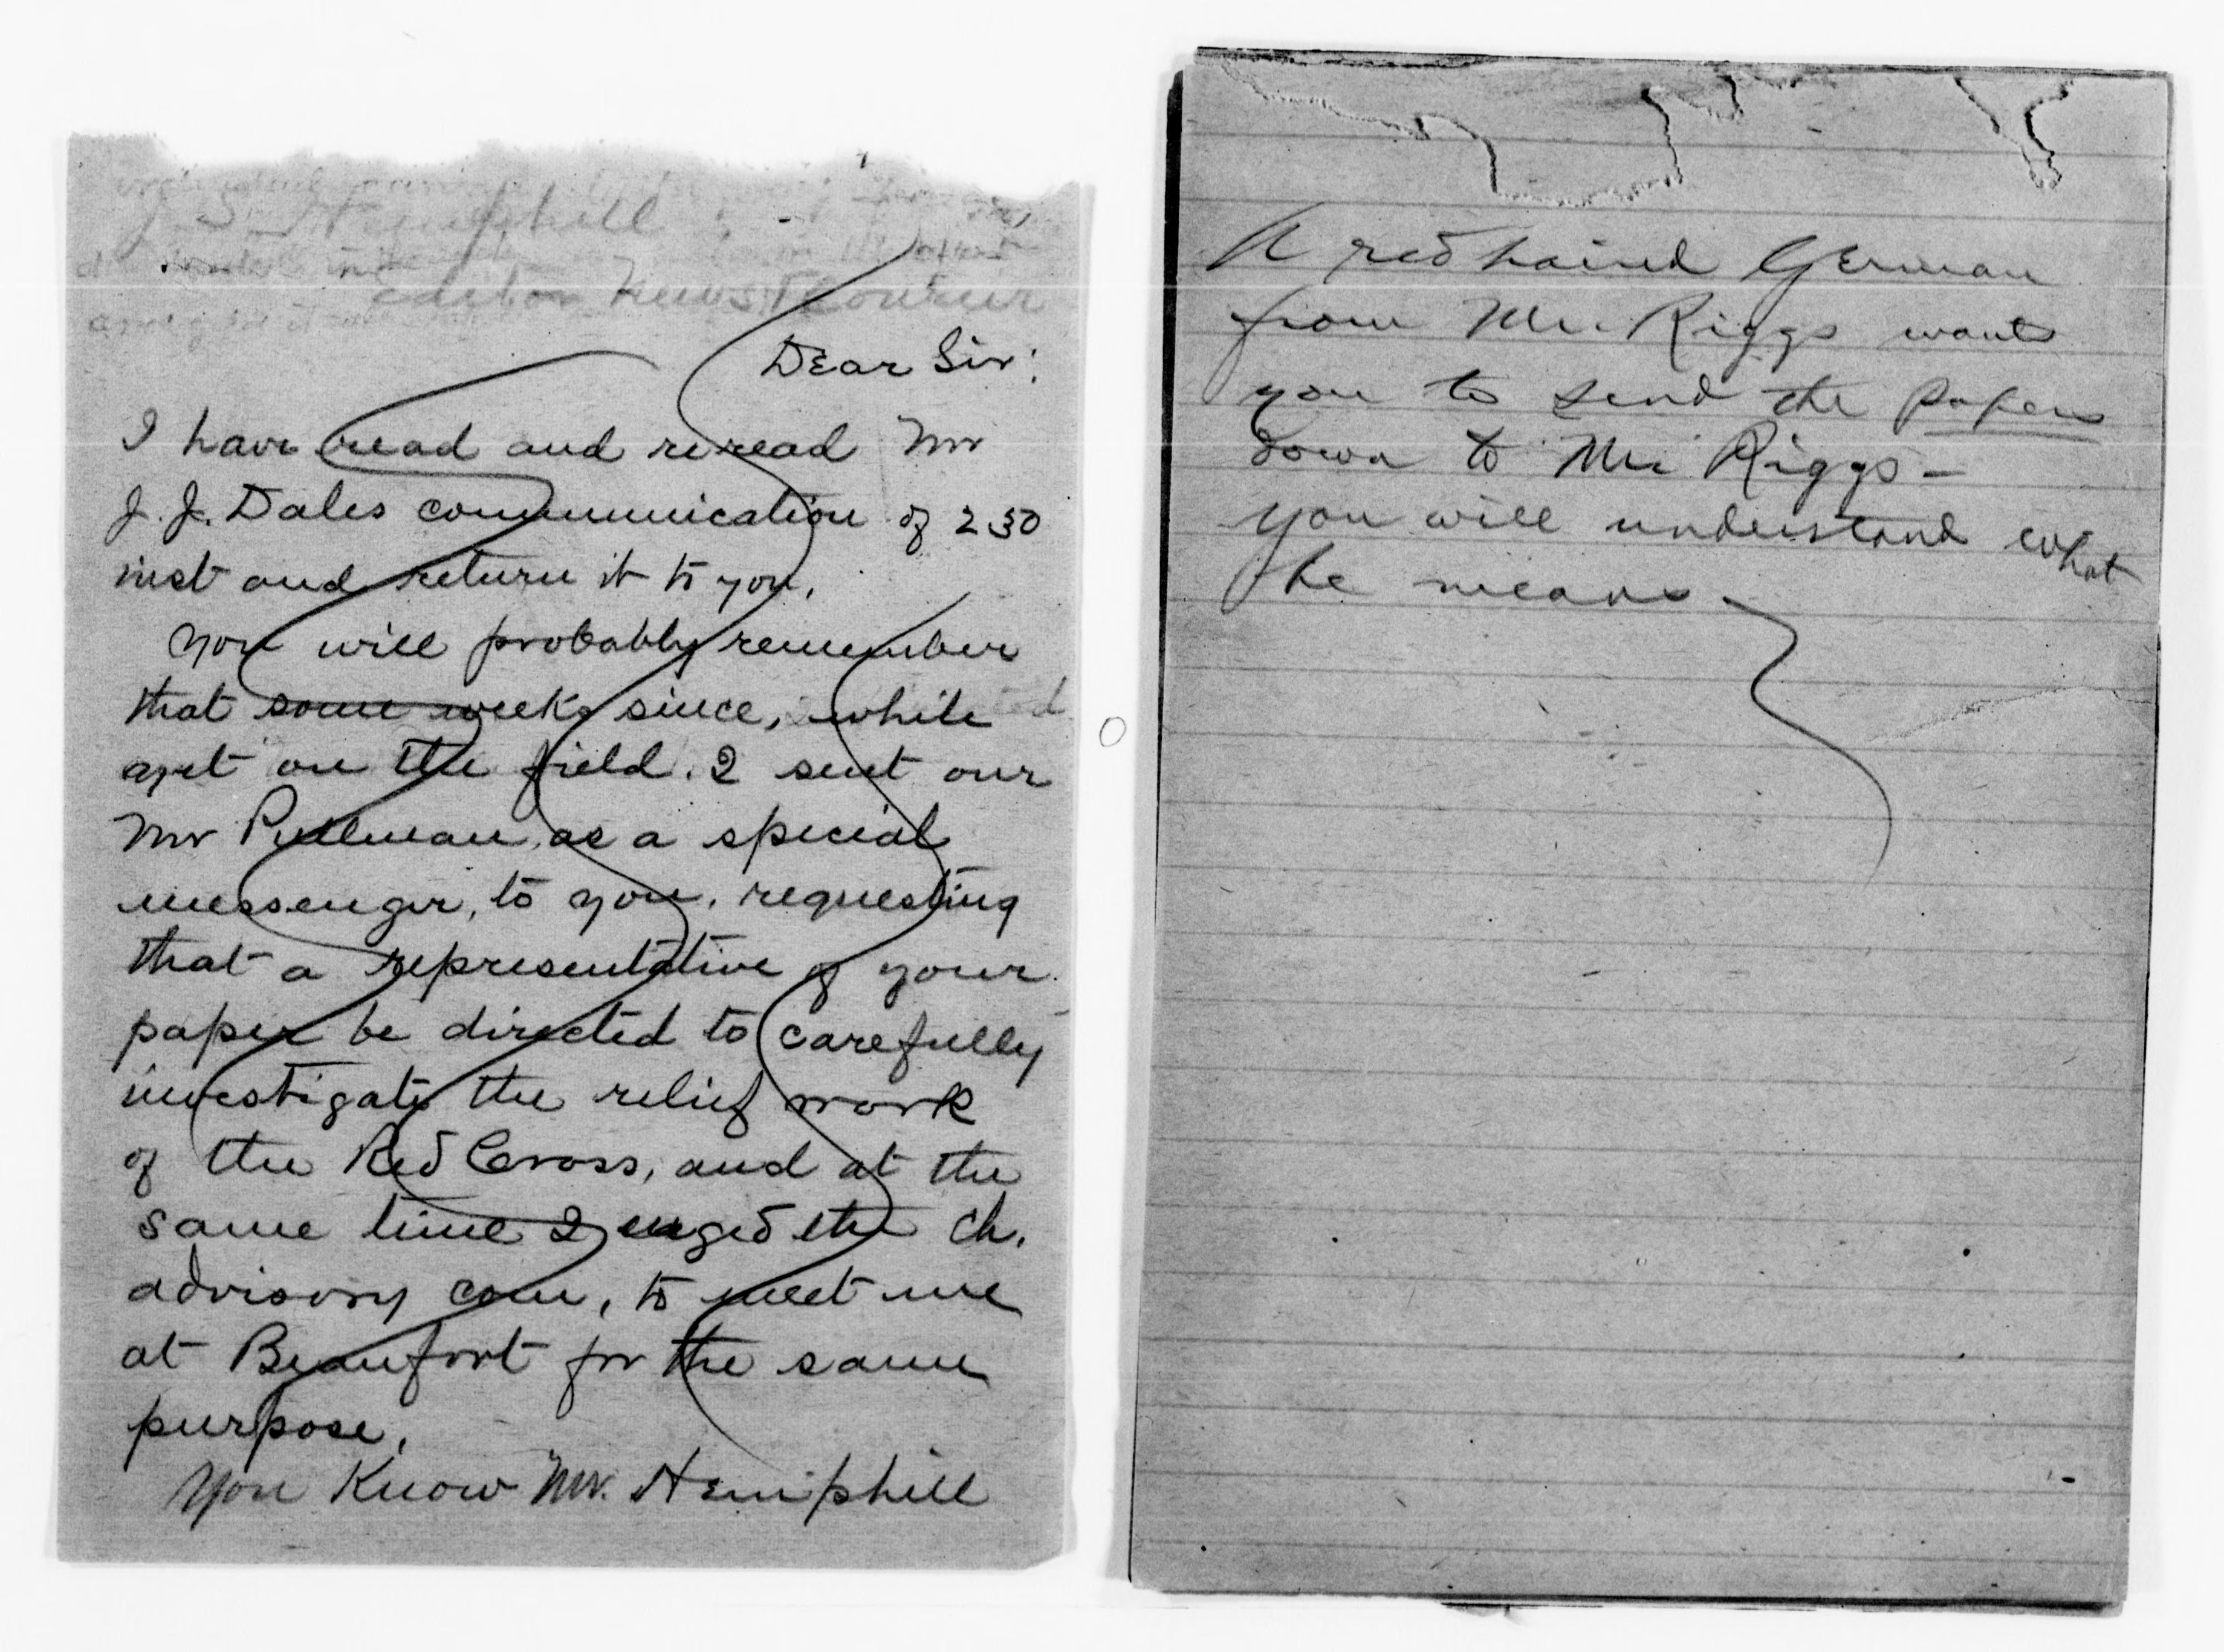 Hemphill
Editor News & Courier
Dear Sir:
I have read and reread Mr
J. J. Dales communication of 23D
inst and return it to you.
You will probably remember
that some weeks since, while
yet on the field. I sent our
Mr Pullman, as a special
messenger, to you, requesting
that a representative of your
paper be directed to carefully
investigate the relief work
of the Red Cross, and at the
same time I urged the Ch.
advisory com, to meet me
at Beaufort for the same
purpose.
You Know Mr. Hemphill
A red haired German
from Mr. Riggs wants
you to send the papers
down to Mr Riggs –
you will understand what
he means –